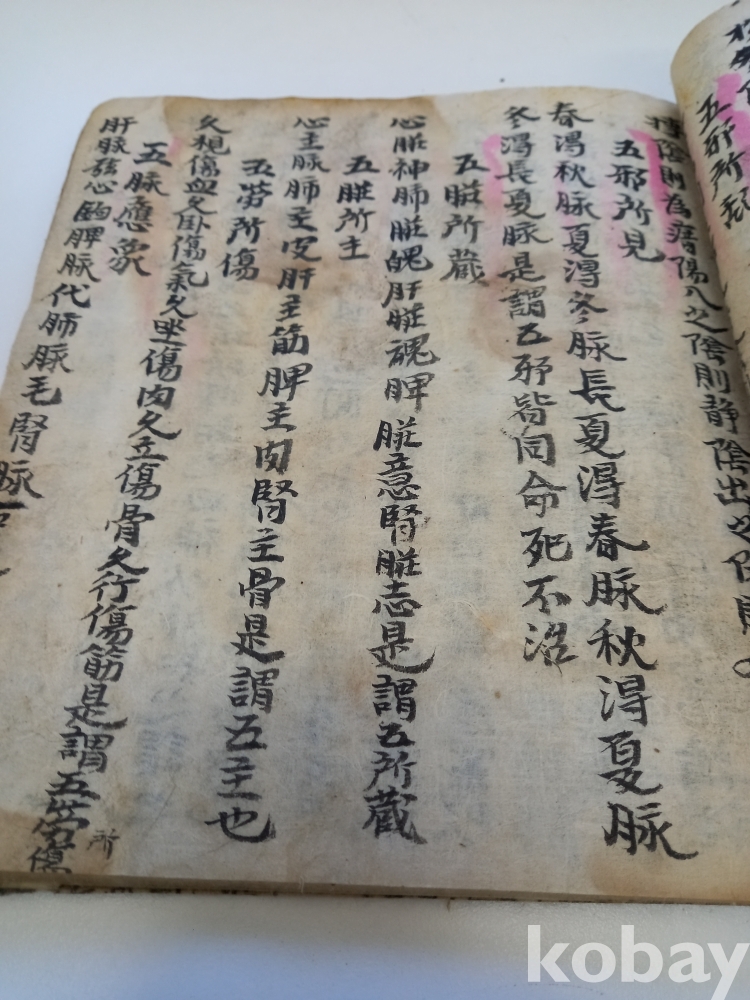 五邪所
搏陰則為瘖陽入之陰則静陰出之陽則
五邪所見
春淂秋脉夏淂冬脉長夏淂春脉秋淂夏脉
冬淂長夏脉是謂五邪皆同命死不沼
五脏所藏
心脏神肺脏魄肝脏魂脾脏意腎脏志是謂五所藏
五脏所主
心主脉肺主皮肝主筋脾主肉腎主骨是謂五主也
五劳所傷
久視傷血久卧傷氣久坐傷肉久立傷骨久行傷筋是謂五劳所傷
五脉應象
肝脉弦心鈎脾脉代肺脉毛腎脉
kobay